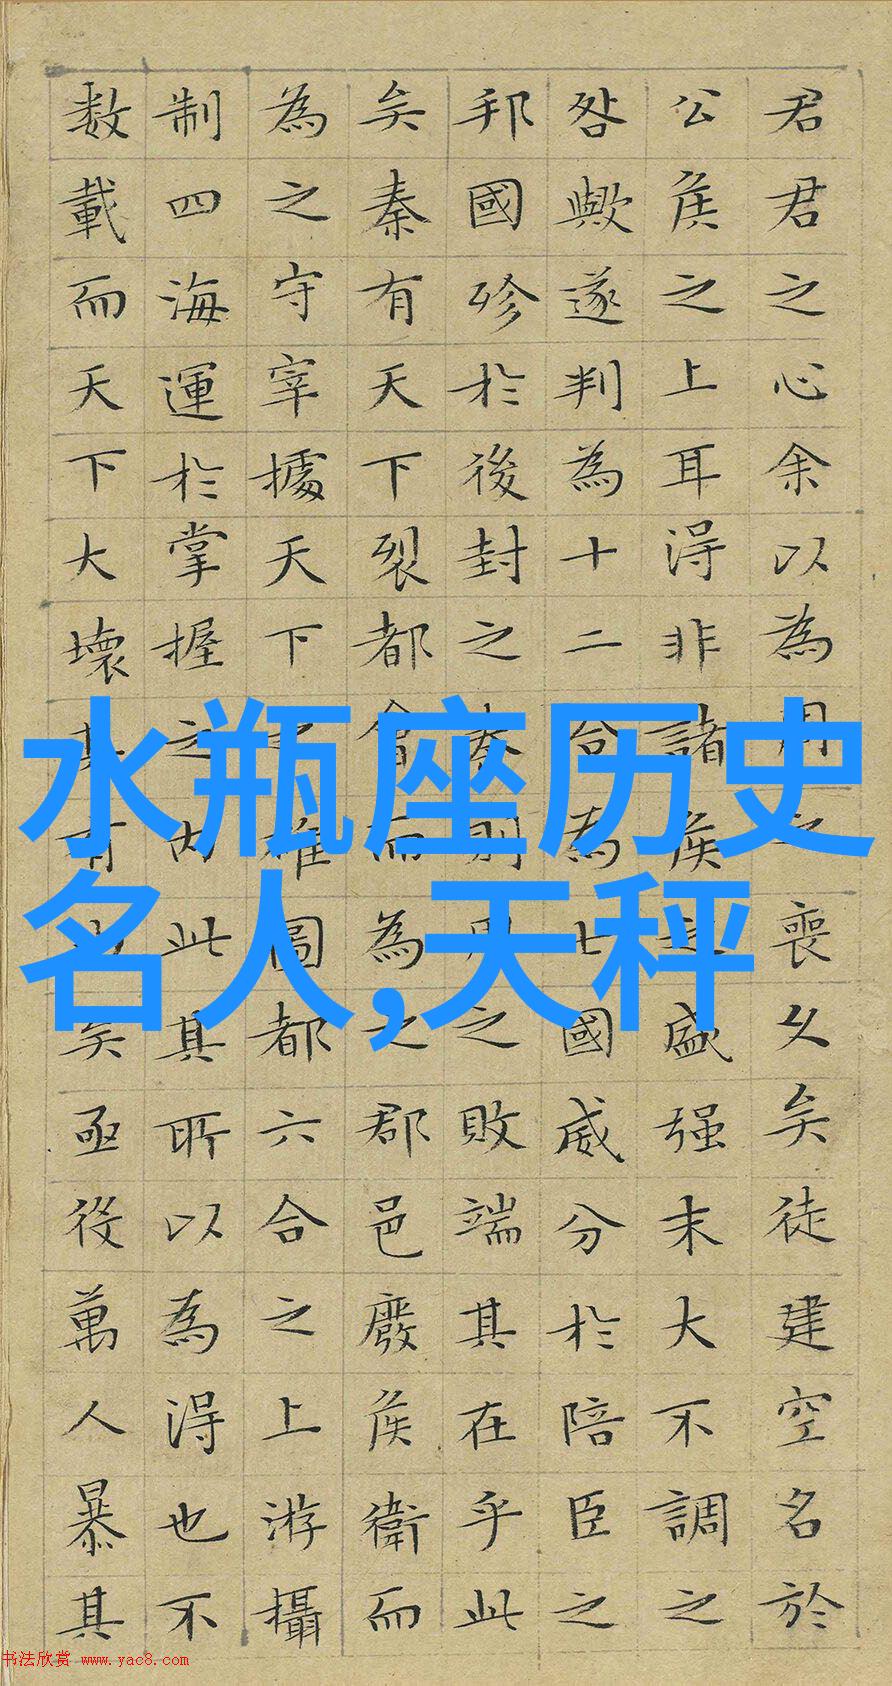 君君之心余以為周之喪久矣徒建空名於
公侯之上耳得非諸侯之盛强末大不調之
咎歟遂判為十二合為七國威分於陪臣之
邦國殄於後封之秦則周之敗端其在乎此
矣秦有天下裂都會而為之郡邑廢侯衛而
為之守宰據天下之雄圖都六合之上游攝
制四海運於掌握之内此其所以為得也不
数載而天下大壞其有由矣亟役萬人暴其
水瓶座历史
名人,天秤
书法欣赏 www.yac8.com